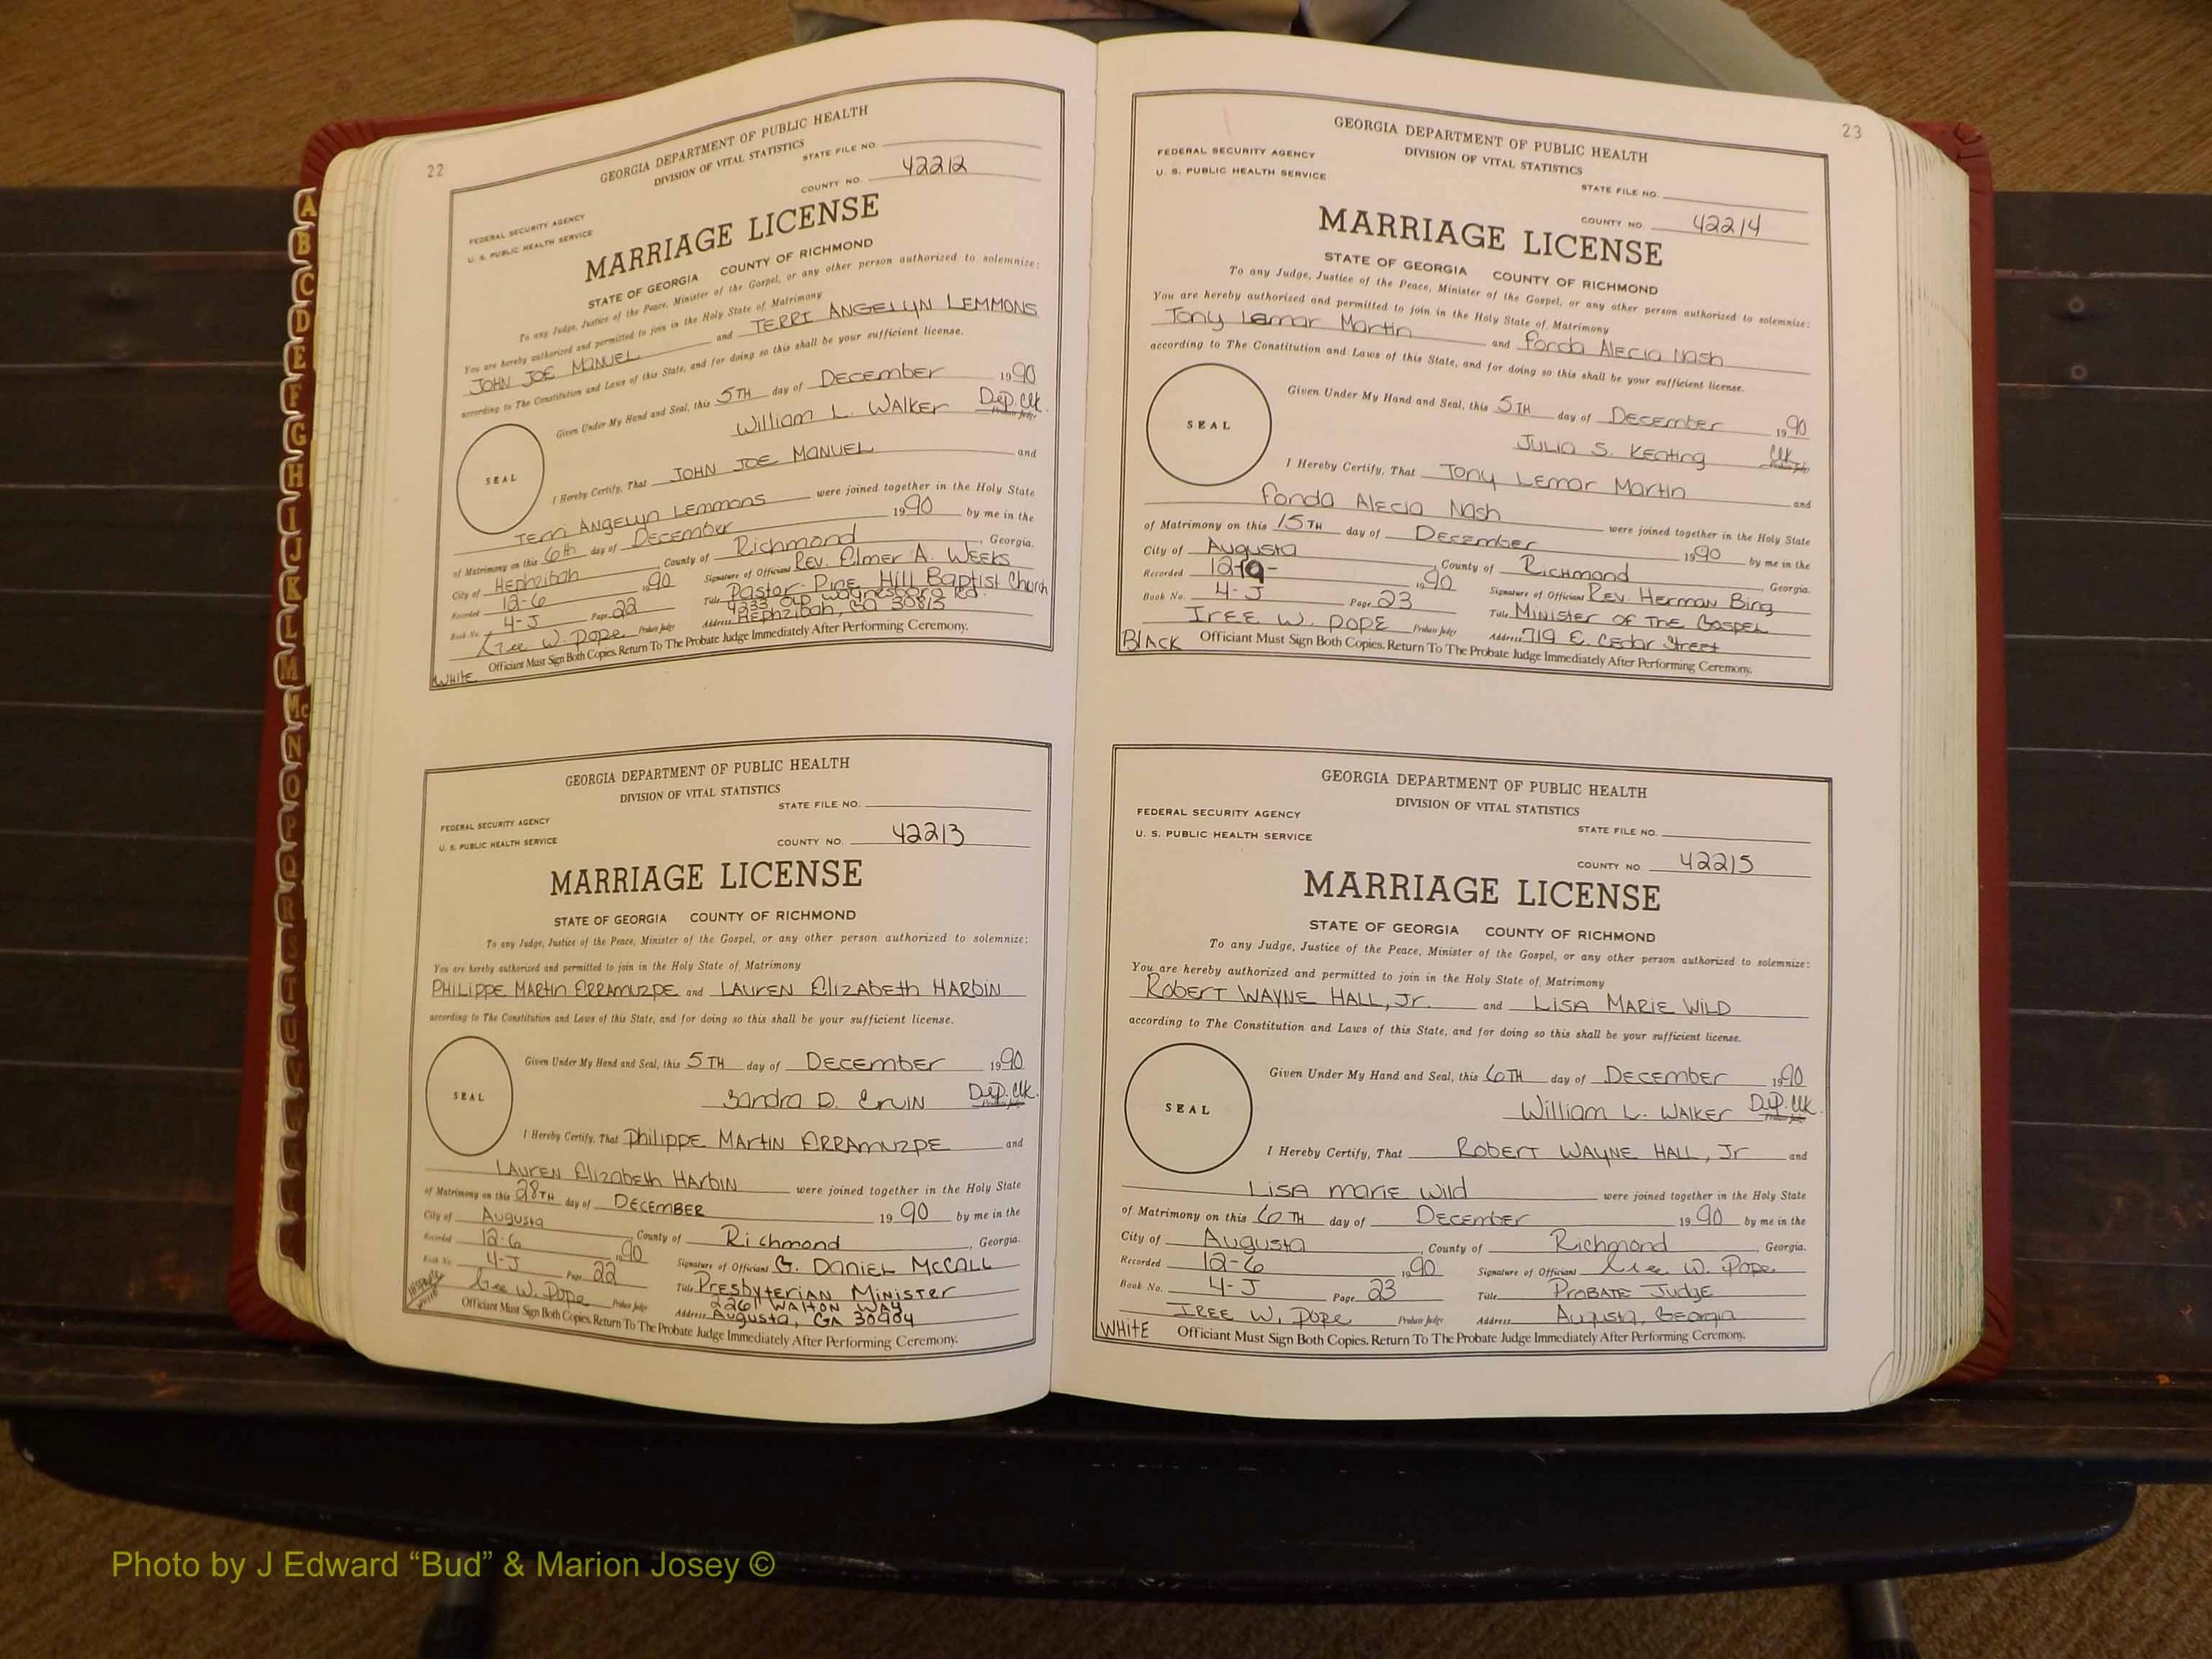 22
GEORGIA DEPARTMENT OF PUBLIC HEALTH
DIVISION OF VITAL STATISTICS
STATE FILE NO.
FEDERAL SECURITY AGENCY
U. S. PUBLIC HEALTH SERVICE
COUNTY NO. 42212
MARRIAGE LICENSE
STATE OF GEORGIA COUNTY OF RICHMOND
To any Judge, Justice of the Peace, Minister of the Gospel, or any other person authorized to solemnize:
You are hereby authorized and permitted to join in the Holy State of Matrimony
JOHN JOE MANUEL and TERRI ANGELYN LEMMONS
according to The Constitution and Laws of this State, and for doing so this shall be your sufficient license.
Given Under My Hand and Seal, this 5TH day of December 1990
William L. WALKER Dep. Clk. Probate Judge
SEAL
I Hereby Certify, That JOHN JOE MANUEL and
Terri Angelyn Lemmons were joined together in the Holy State
of Matrimony on this 6th day of December 1990 by me in the
City of Hephzibah, County of Richmond, Georgia.
Recorded 12-6 1990 Signature of Officiant Rev. Elmer A. Weeks
Book No. 4-J Page 22 Title Pastor-Pine Hill Baptist Church
4233 Old Waynesboro Rd.
Iree W. Pope Probate Judge Address Hephzibah, GA 30815
WHITE Officiant Must Sign Both Copies. Return To The Probate Judge Immediately After Performing Ceremony.
GEORGIA DEPARTMENT OF PUBLIC HEALTH
DIVISION OF VITAL STATISTICS
STATE FILE NO.
FEDERAL SECURITY AGENCY
U. S. PUBLIC HEALTH SERVICE
COUNTY NO. 42213
MARRIAGE LICENSE
STATE OF GEORGIA COUNTY OF RICHMOND
To any Judge, Justice of the Peace, Minister of the Gospel, or any other person authorized to solemnize:
You are hereby authorized and permitted to join in the Holy State of Matrimony
PHILIPPE MARTIN ERRAMUZPE and LAUREN ElizAbeth HARbIN
according to The Constitution and Laws of this State, and for doing so this shall be your sufficient license.
Given Under My Hand and Seal, this 5TH day of December 1990
Sandra D. Ervin Dep. Clk. Probate Judge
SEAL
I Hereby Certify, That Philippe Martin ERRAMUZPE and
LAUREN Elizabeth Harbin were joined together in the Holy State
of Matrimony on this 28TH day of DECEMBER 1990 by me in the
City of Augusta, County of Richmond, Georgia.
Recorded 12-6 1990 Signature of Officiant G. DANIEL McCALL
Book No. 4-J Page 22 Title Presbyterian Minister
2261 WALTON WAY
Iree W. Pope Probate Judge Address Augusta, GA 30904
WHITE Officiant Must Sign Both Copies. Return To The Probate Judge Immediately After Performing Ceremony.
23
GEORGIA DEPARTMENT OF PUBLIC HEALTH
DIVISION OF VITAL STATISTICS
FEDERAL SECURITY AGENCY
U. S. PUBLIC HEALTH SERVICE
STATE FILE NO.
COUNTY NO. 42214
MARRIAGE LICENSE
STATE OF GEORGIA COUNTY OF RICHMOND
To any Judge, Justice of the Peace, Minister of the Gospel, or any other person authorized to solemnize:
You are hereby authorized and permitted to join in the Holy State of Matrimony
Tony Lemar Martin and Fonda Alecia Nash
according to The Constitution and Laws of this State, and for doing so this shall be your sufficient license.
Given Under My Hand and Seal, this 5TH day of December 1990
Julia S. Keating Clk. Probate Judge
SEAL
I Hereby Certify, That Tony Lemar Martin and
Fonda Alecia Nash were joined together in the Holy State
of Matrimony on this 15TH day of December 1990 by me in the
City of Augusta, County of Richmond, Georgia.
Recorded 12-19- 1990 Signature of Officiant Rev. Herman Bing
Book No. 4-J Page 23 Title Minister of The Gospel
IREE W. POPE Probate Judge Address 719 E. Cedar Street
BLACK Officiant Must Sign Both Copies. Return To The Probate Judge Immediately After Performing Ceremony.
GEORGIA DEPARTMENT OF PUBLIC HEALTH
DIVISION OF VITAL STATISTICS
FEDERAL SECURITY AGENCY
U. S. PUBLIC HEALTH SERVICE
STATE FILE NO.
COUNTY NO. 42215
MARRIAGE LICENSE
STATE OF GEORGIA COUNTY OF RICHMOND
To any Judge, Justice of the Peace, Minister of the Gospel, or any other person authorized to solemnize:
You are hereby authorized and permitted to join in the Holy State of Matrimony
Robert WAYNE HALL, Jr. and LiSA MARiE WiLD
according to The Constitution and Laws of this State, and for doing so this shall be your sufficient license.
Given Under My Hand and Seal, this 6TH day of December 1990
William L. Walker Dep. Clk. Probate Judge
SEAL
I Hereby Certify, That Robert WAYNE HALL, Jr and
LiSA MARiE Wild were joined together in the Holy State
of Matrimony on this 6TH day of December 1990 by me in the
City of Augusta, County of Richmond, Georgia.
Recorded 12-6 1990 Signature of Officiant Iree W. Pope
Book No. 4-J Page 23 Title Probate Judge
IREE W. Pope Probate Judge Address Augusta, Georgia
WHITE Officiant Must Sign Both Copies. Return To The Probate Judge Immediately After Performing Ceremony.
A
B
C
D
E
F
G
H
I
J
K
L
M
Mc
N
O
P
Q
R
S
T
U
V
Photo by J Edward “Bud” & Marion Josey ©